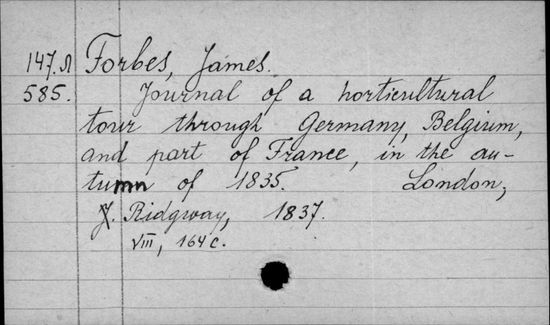 147.Л Forbes, James.
585. Journal of a horticultural
tour through Germany, Belgium,
and part of France, in the au-
tumn of 1835. London,
J. Ridgway, 1837.
VIII, 164 c.